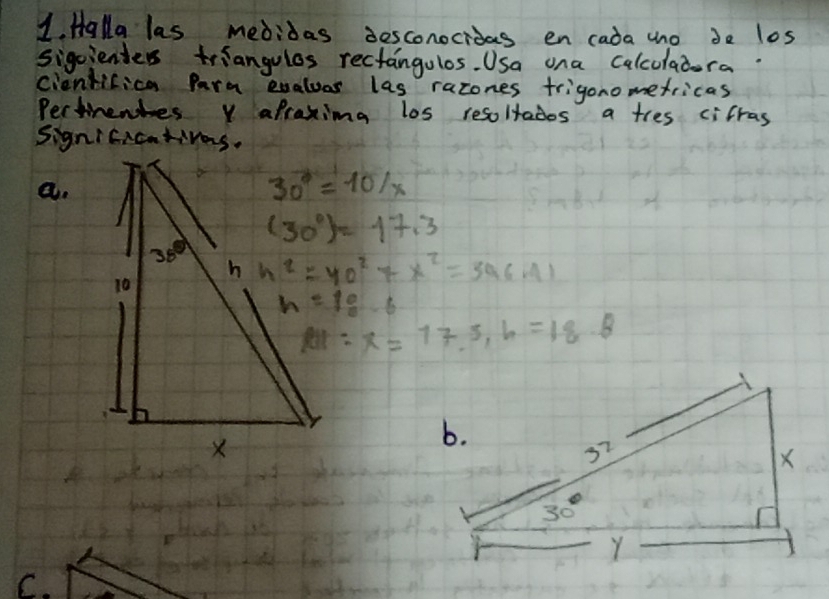 1. Halla las medidas desconocidas en cada uno de los
siguientes triangulos rectángulos. Usa una calculadora
cientifica para evaluar las razones trigonometricas
Pertinentes y aproxima los resultados a tres cifras
significativas.
a.
30° = 10/x
(30°) = 17.3
38°
h
10
h² = 40² + x² =
h = 18.
x = 17.5, h = 18 8
x
b.
32
x
30°
y
c.